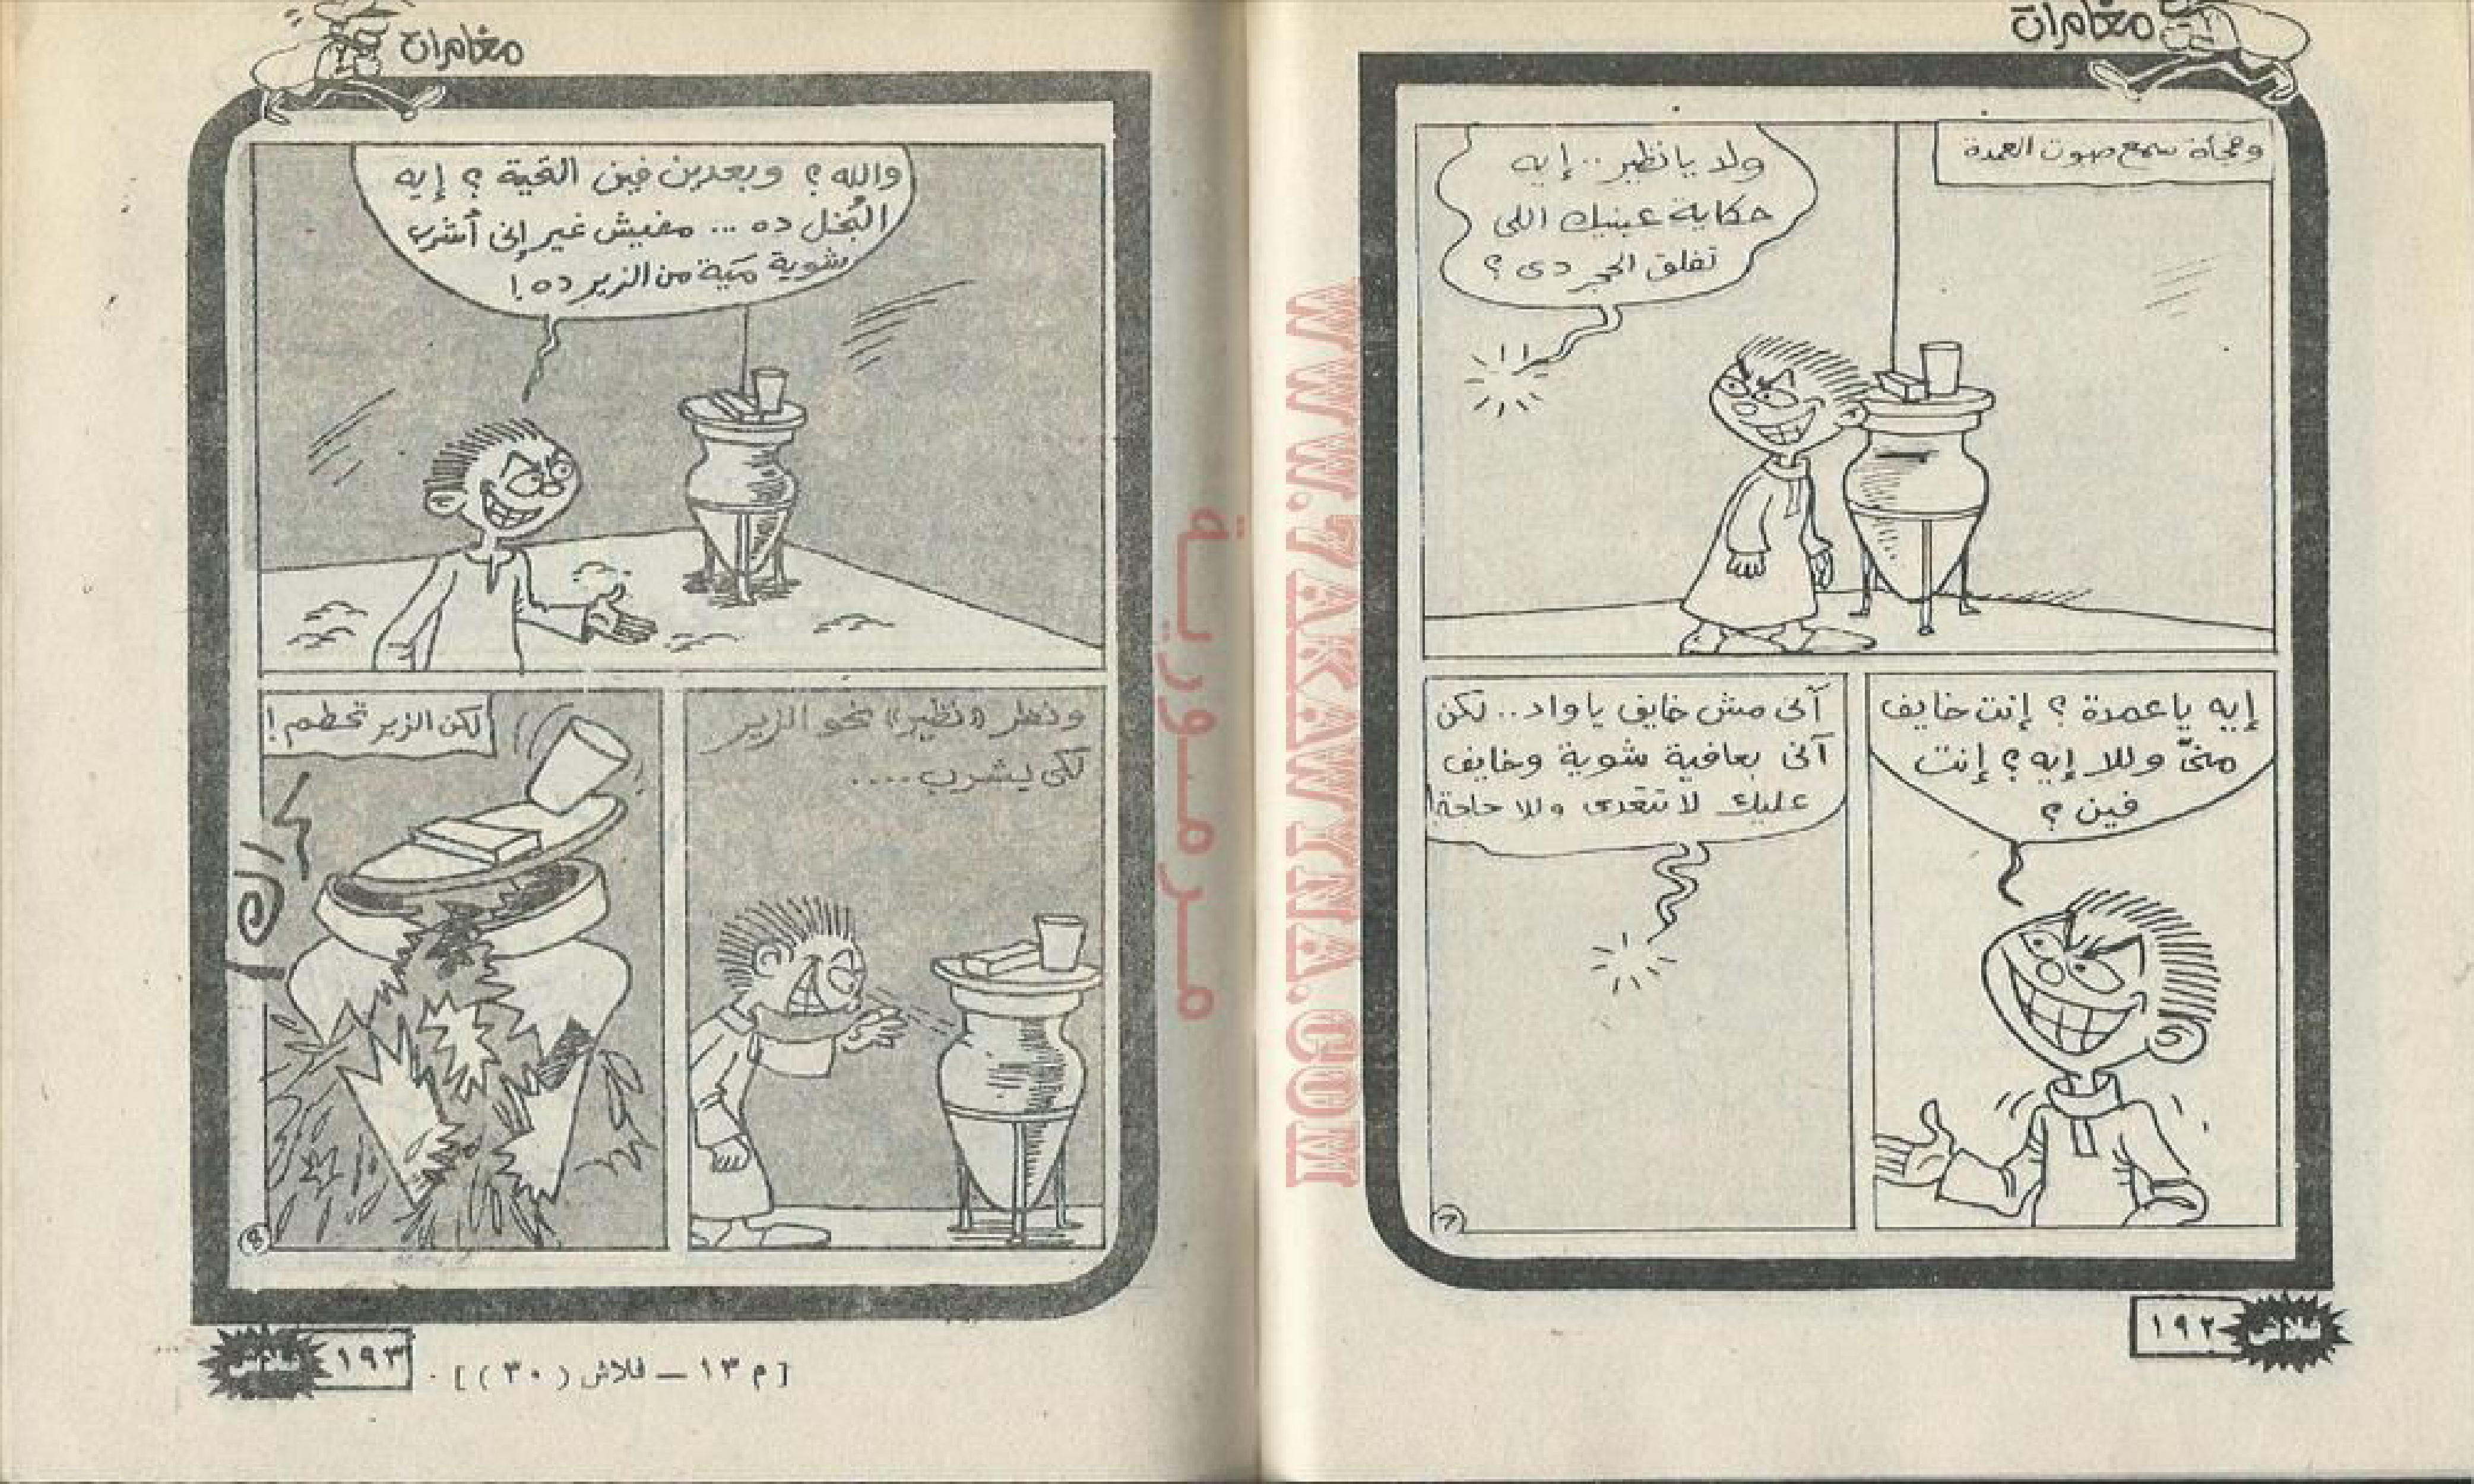 مغامرات
وفجأة سمع صوت العمدة
ولا يا نظير .. إيه
حكاية عينيك اللى
تفلق الحجر دى ؟
إيه يا عمدة ؟ إنت خايف
منىّ وللا إيه ؟ إنت
فين ؟
آنى مش خايف يا واد .. لكن
آنى بعافية شوية وخايف
عليك لا تتعدى وللا حاجة !
7
١٩٢
فلاش
مغامرات
والله ؟ وبعدين فين القتة ؟ إيه
البُخل ده ... مفيش غير إنى أشرب
شوية مَية من الزير ده !
ونظر «نظير» نحو الزير
لكى ليشرب ....
لكن الزير تحطم !
8
١٩٣
فلاش
[ م ١٣ – فلاش ( ٣٠ ) ] .
مرمورية
WWW.7AKAWYNA.COM